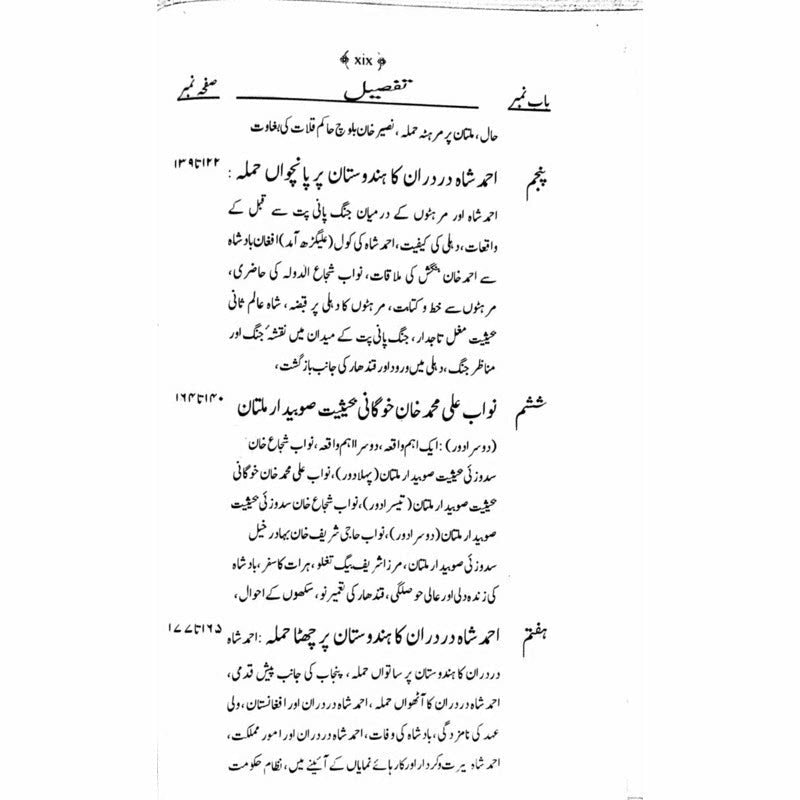 ﴾ xix ﴿
باب نمبر تفصیل صفحہ نمبر
حال، ملتان پر مرہٹہ حملہ، نصیر خان بلوچ حاکم قلات کی بغاوت
پنجم احمد شاہ دردران کا ہندوستان پر پانچواں حملہ : ۱۲۲ تا ۱۳۹
احمد شاہ اور مرہٹوں کے درمیان جنگ پانی پت سے قبل کے
واقعات، دہلی کی کیفیت، احمد شاہ کی کول (علیگڑھ آمد) افغان بادشاہ
سے احمد خان بنگش کی ملاقات، نواب شجاع الدولہ کی حاضری،
مرہٹوں سے خط و کتابت، مرہٹوں کا دہلی پر قبضہ، شاہ عالم ثانی
بحیثیت مغل تاجدار، جنگ پانی پت کے میدان میں نقشۂ جنگ اور
مناظر جنگ، دہلی میں ورود اور قندھار کی جانب بازگشت،
ششم نواب علی محمد خان خوگانی بحیثیت صوبیدار ملتان ۱۴۰ تا ۱۶۴
(دوسرا دور) : ایک اہم واقعہ، دوسرا اہم واقعہ، نواب شجاع خان
سدوزئی بحیثیت صوبیدار ملتان (پہلا دور)، نواب علی محمد خان خوگانی
بحیثیت صوبیدار ملتان (تیسرا دور)، نواب شجاع خان سدوزئی بحیثیت
صوبیدار ملتان (دوسرا دور)، نواب حاجی شریف خان بہادر خیل
سدوزئی صوبیدار ملتان، مرزا شریف بیگ تغلو، ہرات کا سفر، بادشاہ
کی زندہ دلی اور عالی حوصلگی، قندھار کی تعمیر نو، سکھوں کے احوال،
ہفتم احمد شاہ دردران کا ہندوستان پر چھٹا حملہ : احمد شاہ ۱۶۵ تا ۱۷۷
دردران کا ہندوستان پر ساتواں حملہ، پنجاب کی جانب پیش قدمی،
احمد شاہ دردران کا آٹھواں حملہ، احمد شاہ دردران اور افغانستان، ولی
عہد کی نامزدگی، بادشاہ کی وفات، احمد شاہ دردران اور امور مملکت،
احمد شاہ سیرت و کردار اور کارہائے نمایاں کے آئینے میں، نظام حکومت